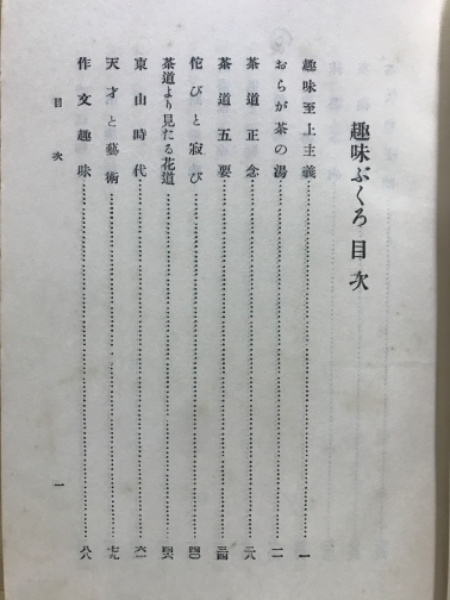 趣味ぶくろ 目次
趣味至上主義 一
おらが茶の湯 一一
茶道正念 二八
茶道五要 三四
侘びと寂び 四〇
茶道より見たる花道 四六
東山時代 六一
天才と藝術 七九
作文趣味 八八
目次 一